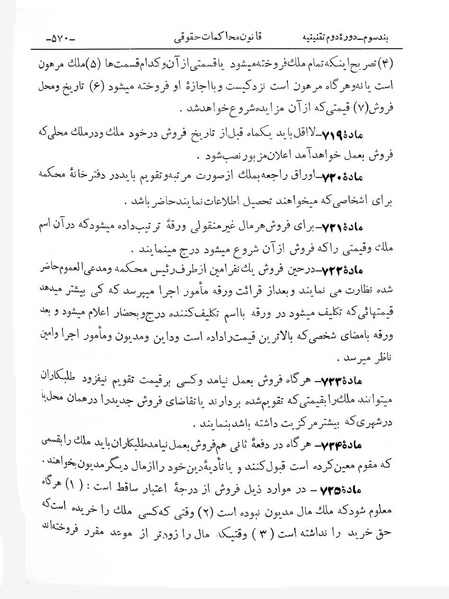 بند سوم ـ دورهٔ دوم تقنینیه
قانون محاکمات حقوقی
ـ۵۷۰ـ
(۴) تصریح اینکه تمام ملك فروخته میشود یا قسمتی از آن و کدام قسمت‌ها (۵) ملك مرهون
است یا نه و هر گاه مرهون است نزد کیست و با اجازهٔ او فروخته میشود (۶) تاریخ و محل
فروش (۷) قیمتی که از آن مزایده شروع خواهد شد.
مادهٔ ۷۱۹ـ لا اقل باید یکماه قبل از تاریخ فروش در خود ملك و در ملك محلی که
فروش بعمل خواهد آمد اعلان مزبور نصب شود.
مادهٔ ۷۲۰ـ اوراق راجعه بملك از صورت مرتبه و تقویم باید در دفترخانهٔ محکمه
برای اشخاصی که میخواهند تحصیل اطلاعات نمایند حاضر باشد.
مادهٔ ۷۲۱ـ برای فروش هر مال غیر منقولی ورقهٔ ترتیب داده میشود که در آن اسم
ملك و قیمتی را که فروش از آن شروع میشود درج مینمایند.
مادهٔ ۷۲۲ـ در حین فروش یك نفر امین از طرف رئیس محکمه و مدعی العموم حاضر
شده نظارت می نمایند و بعد از قرائت ورقه مأمور اجرا میپرسد که کی بیشتر میدهد
قیمتهائی که تکلیف میشود در ورقه با اسم تکلیف کننده درج و بحضار اعلام میشود و بعد
ورقه بامضای شخصی که بالاترین قیمت را داده است و داین و مدیون و مأمور اجرا و امین
ناظر میرسد.
مادهٔ ۷۲۳ـ هر گاه فروش بعمل نیامد و کسی بر قیمت تقویم نیفزود طلبکاران
میتوانند ملك را بقیمتی که تقویم شده بردارند یا تقاضای فروش جدید را در همان محل یا
در شهری که بیشتر مرکزیت داشته باشد بنمایند.
مادهٔ ۷۲۴ـ هر گاه در دفعهٔ ثانی هم فروش بعمل نیامد طلبکاران باید ملك را بقسمی
که مقوم معین کرده است قبول کنند و یا تأدیهٔ دین خود را از مال دیگر مدیون بخواهند.
مادهٔ ۷۲۵ـ در موارد ذیل فروش از درجهٔ اعتبار ساقط است: (۱) هر گاه
معلوم شود که ملك مال مدیون نبوده است (۲) وقتی که کسی ملك را خریده است که
حق خرید را نداشته است (۳) وقتیکه مال را زودتر از موعد مقرر فروخته‌اند